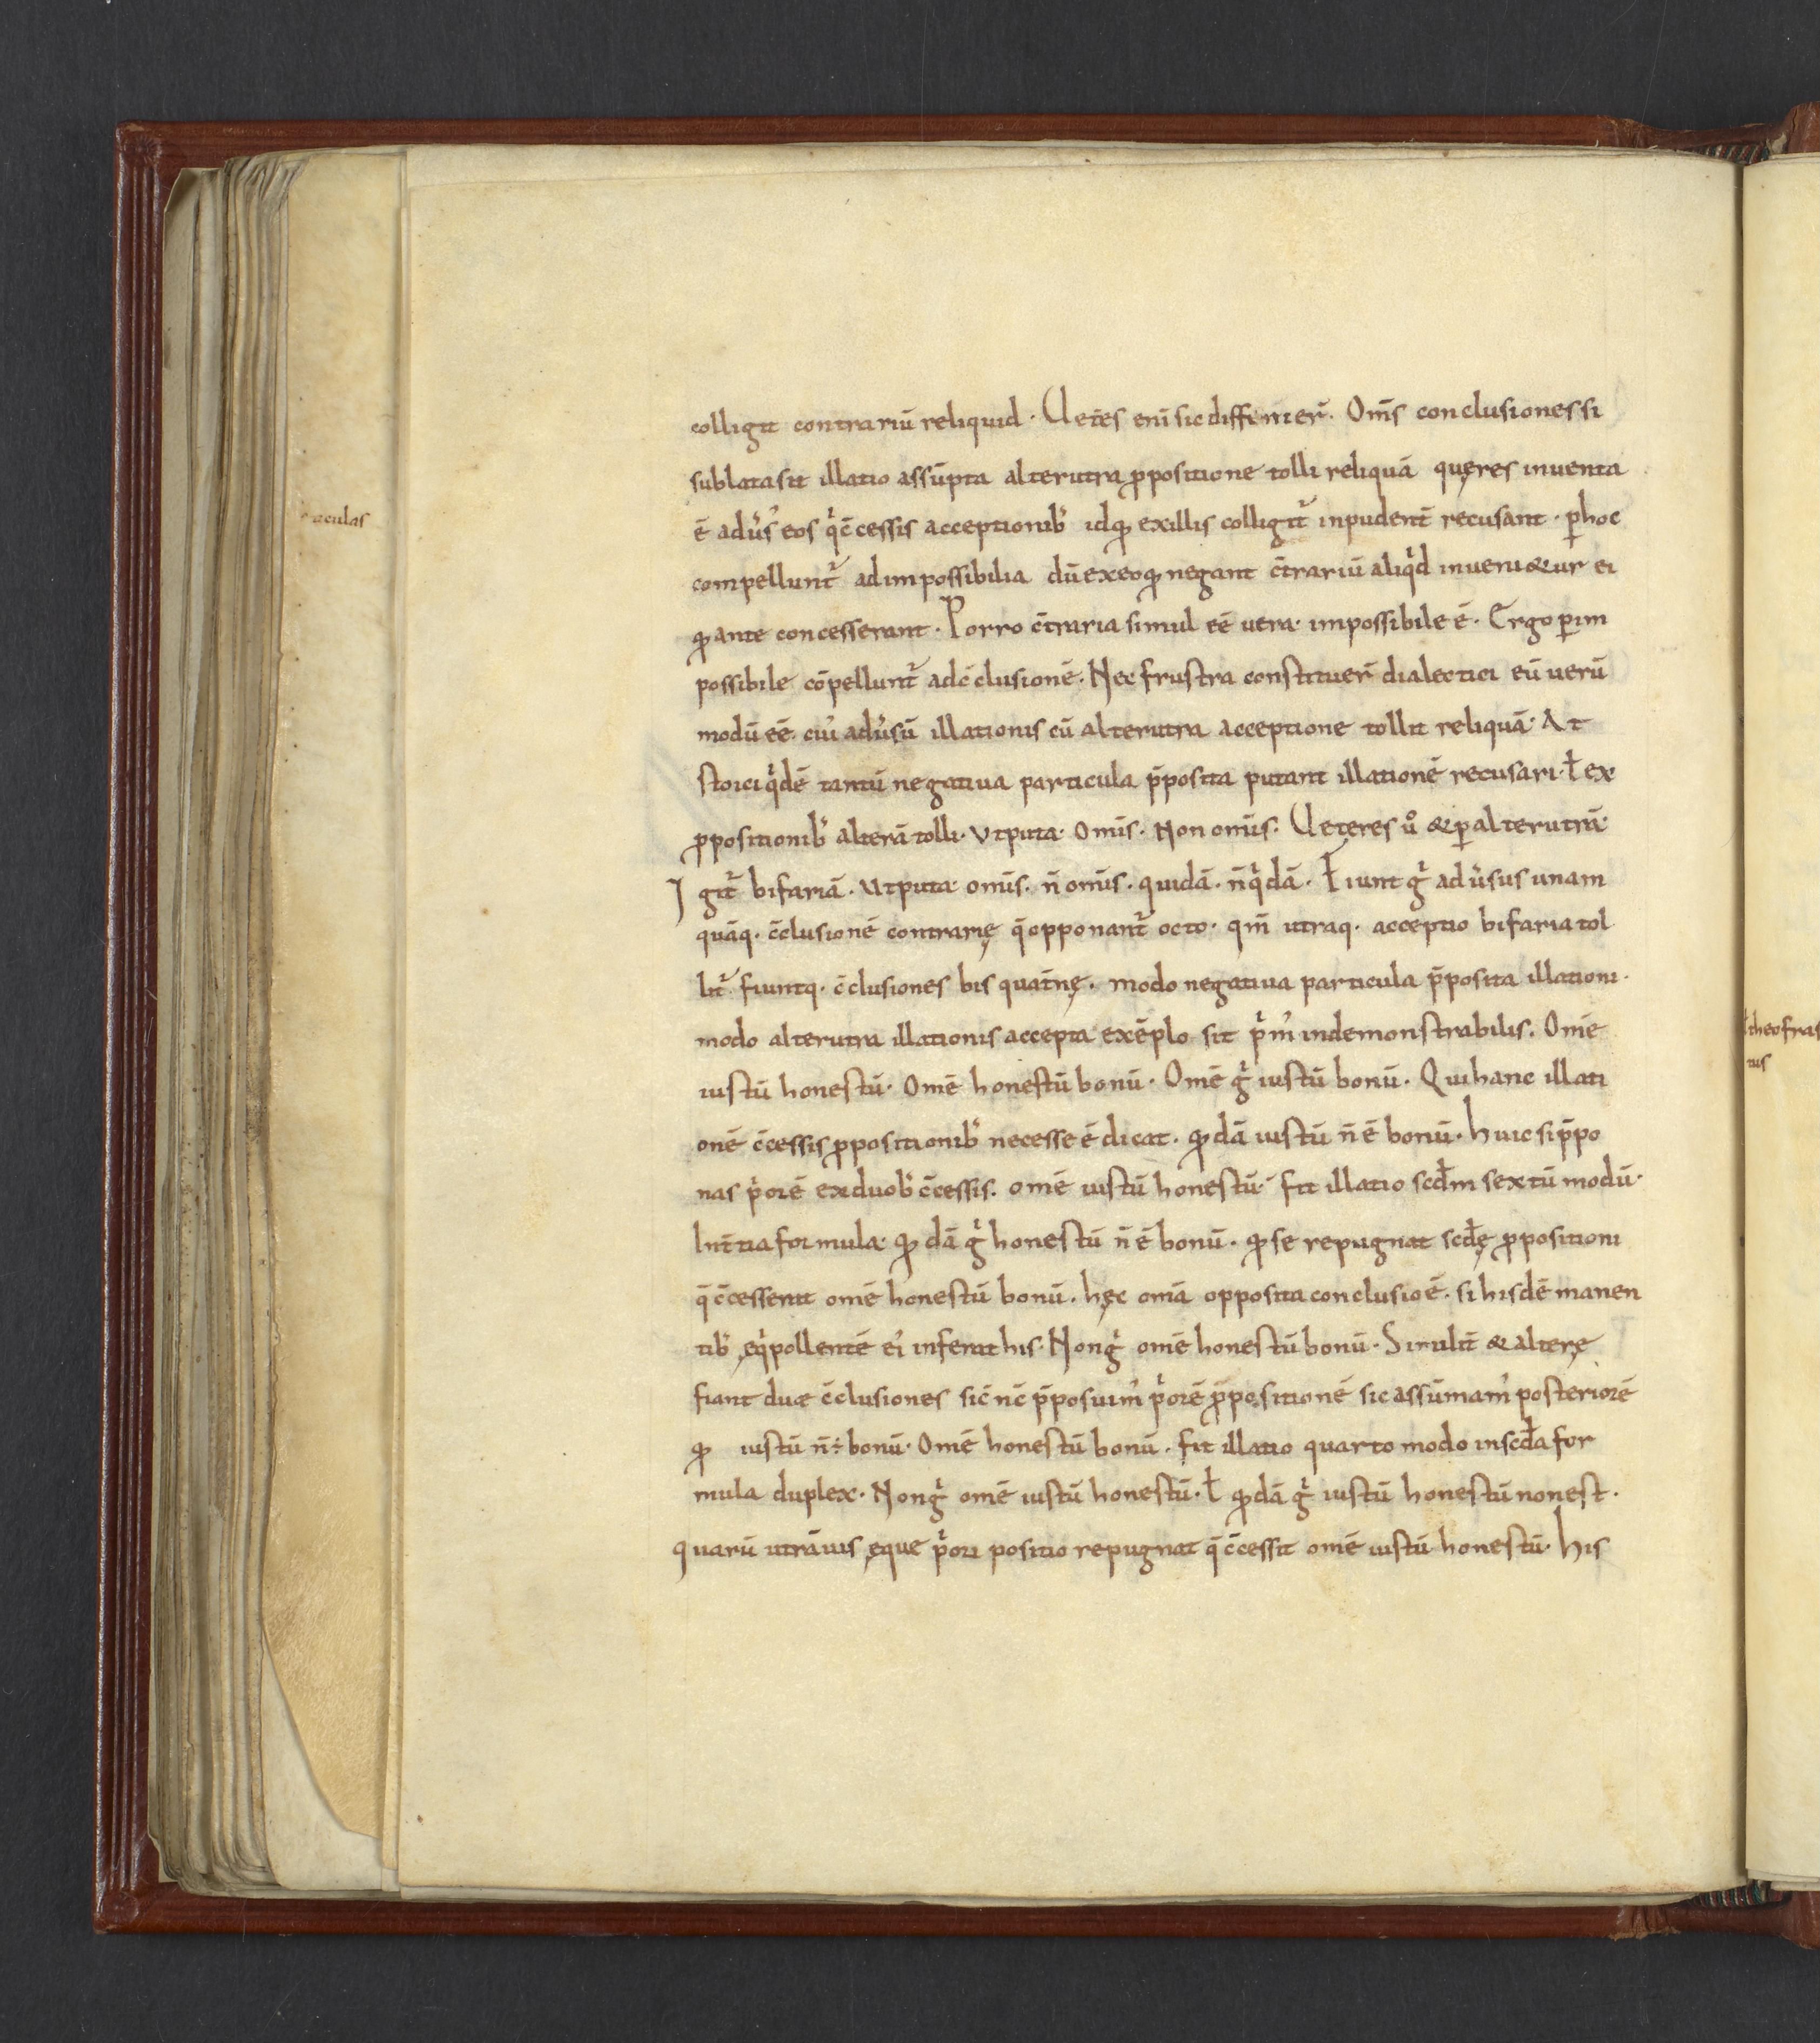 colligit contrariū reliquid · Uetēs enī sic diffinier̄. Om̄s conclusiones si
sublata sit illatio assūpta alterutra ꝓpositione tolli reliquā quęres inventa
ē adu̓s eos qͥ c̄cessis acceptionib; idqꝫ exillis colligit᷑ inpudent̄ recusant · ꝑ hoc
compellunt᷑ ad impossibilia dū exeo qꝫ negant c̄trariū aliqͥd inueni&ur ei
qꝫ ante concesserant · Porro c̄traria simul eē uera· impossibile ē · Ergo ꝑ im
possibile cōpellunt᷑ ad c̄clusionē · Nec frustra constituer̄ dialectici eū uerū
modū eē· cui᾿ adu̓sū illationis cū alterutra acceptione tollit reliquā· At
stoici qͥdē tantū negatiua particula p̄posita putant illationē recusari · ł ex
ꝓpositionib; alterā tolli· Vt puta· Om̄is· Non om̄is· Ueteres uͦ & ꝑ alterutrā·
Igit᷑ bifariā · Ut puta· om̄is· n̄ om̄is · quidā · n̄ qͥdā · Fiunt gͥ adu̓sus unam
quāq· c̄clusionē contrarię q̄ opponant᷑ octo · qm̄ utraq· acceptio bifaria tol
lit᷑ fiuntq· c̄clusiones bis quat̄nę · modo negatiua particula p̄posita illationi ·
modo alterutra illationis accepta exēplo sit pͥm᾿ indemonstrabilis. Omē
iustū honestū· Omē honestū bonū · Omē gͥ iustū bonū. Qui hanc illati
onē c̄cessis ꝓpositionib; necesse ē dicat · qꝫdā iustū n̄ ē bonū · huic si p̄po
nas pͥorē ex duob; c̄cessis. omē iustū honestū· fit illatio scđm sextū modū·
In t̄tia formula· qꝫdā gͥ honestū n̄ ē bonū · qꝫ se repugnat scđę ꝓpositioni
q̄ c̄cesserit omē honestū bonū. hęc om̄a opposita conclusio ē· si hisdē manen
tib; ęqͥpollentē ei᾿ inferat his · Non gͥ omē honestū bonū · Similit̄ & alterę
fiant duę c̄clusiones sic nc̄ p̄posuim᾿ pͥorē ꝓpositionē sic assūmam᾿ posteriorē
qꝫ iustū n̄ ÷ bonū· Omē honestū bonū · fit illatio quarto modo in scđa for
mula duplex · Non gͥ omē iustū honestū· ł qꝫdā gͥ iustū honestū non est ·
quarū utrāuis ęque pͥori positio repugnat q̄ c̄cessit omē iustū honestū· His
aculas
theofras
tus